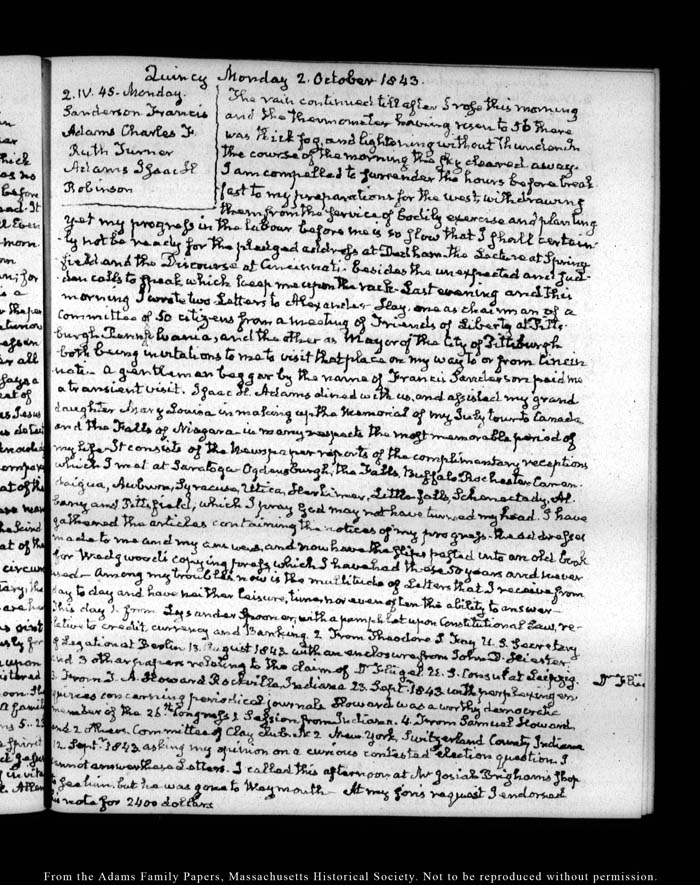 Quincy Monday 2. October 1843.
2. IV. 45. Monday.
Sanderson Francis
Adams Charles F.
Ruth Turner
Adams Isaac H
Robinson
The rain continued till after I rose this morning
and the thermometer having risen to 56 there
was thick fog, and lightening without Thunder. In
the course of the morning the sky cleared away.
I am compelled to surrender the hours before break
fast to my preparations for the west, withdrawing
them from the service of bodily exercise and planting
yet my progress in the labour before me is so slow that I shall certain-
ly not be ready for the pledged address at Dedham, the Lecture at Spring-
field and the Discourse at Cincinnati. besides the unexpected and sud-
den calls to speak which keep me upon the rack. Last evening and this
morning I wrote two Letters to Alexander Hay, one as chairman of a
Committee of 50 citizens from a meeting of Friends of Liberty at Pitts-
burgh Pennsylvania, and the other as Mayor of the City of Pittsburgh
both being invitations to me to visit that place on my way to or from Cincin
nati. A gentleman beggar by the name of Francis Sanderson paid me
a transient visit. Isaac H. Adams dined with us, and assisted my grand
daughter Mary Louisa in making up the memorial of my July tour to Canada
and the Falls of Niagara in many respects the most memorable period of
my life. It consists of the Newspaper reports of the complimentary receptions
which I met at Saratoga Ogdensburgh, the Falls, Buffalo Rochester, Canan-
daigua, Auburn, Syracuse, Utica, Herkimer, Little falls, Schenectady, Al-
bany and Pittsfield, which I pray God may not have turned my head. I have
gathered the articles containing the notices of my progress. the addresses
made to me and my answers, and now have the slips pasted into an old book
for Wedgwood's copying press, which I have had these 30 years and never
used. Among my troubles now is the multitude of Letters that I receive from
day to day and have neither leisure, time nor even often the ability to answer—
This day 1. from Lysander Spooner, with a pamphlet upon Constitutional Law, re-
lative to credit, currency and Banking. 2 From Theodore S. Fay U.S. Secretary
of Legation at Berlin 13. August 1843 with an enclosure from John D. Heister
and 3 other papers relating to the claim of Dr Flügel U.S. Consul at Leipzig.
3. From T. A. Howard Rockville, Indiana 23. Septr. 1843 with perplexing en
quiries concerning periodical journals Howard was a worthy democratic
member of the 26th Congress 1 Session from Indiana. 4. From Samuel Howard,
and 2 others. Committee of Clay club No 2 New York, Switzerland County Indiana
12. Septr. 1843 asking my opinion on a curious contested election question. I
cannot answer these Letters. I called this afternoon at Mr Josiah Brigham's shop
to see him. but he was gone to Weymouth— At my son's request I endorsed
his note for 2400 dollars
From the Adams Family Papers, Massachusetts Historical Society. Not to be reproduced without permission.